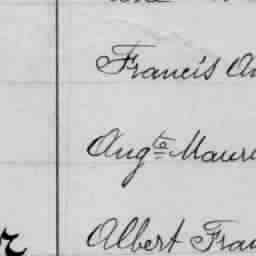 Francis
Augta Mauri
Albert Fran